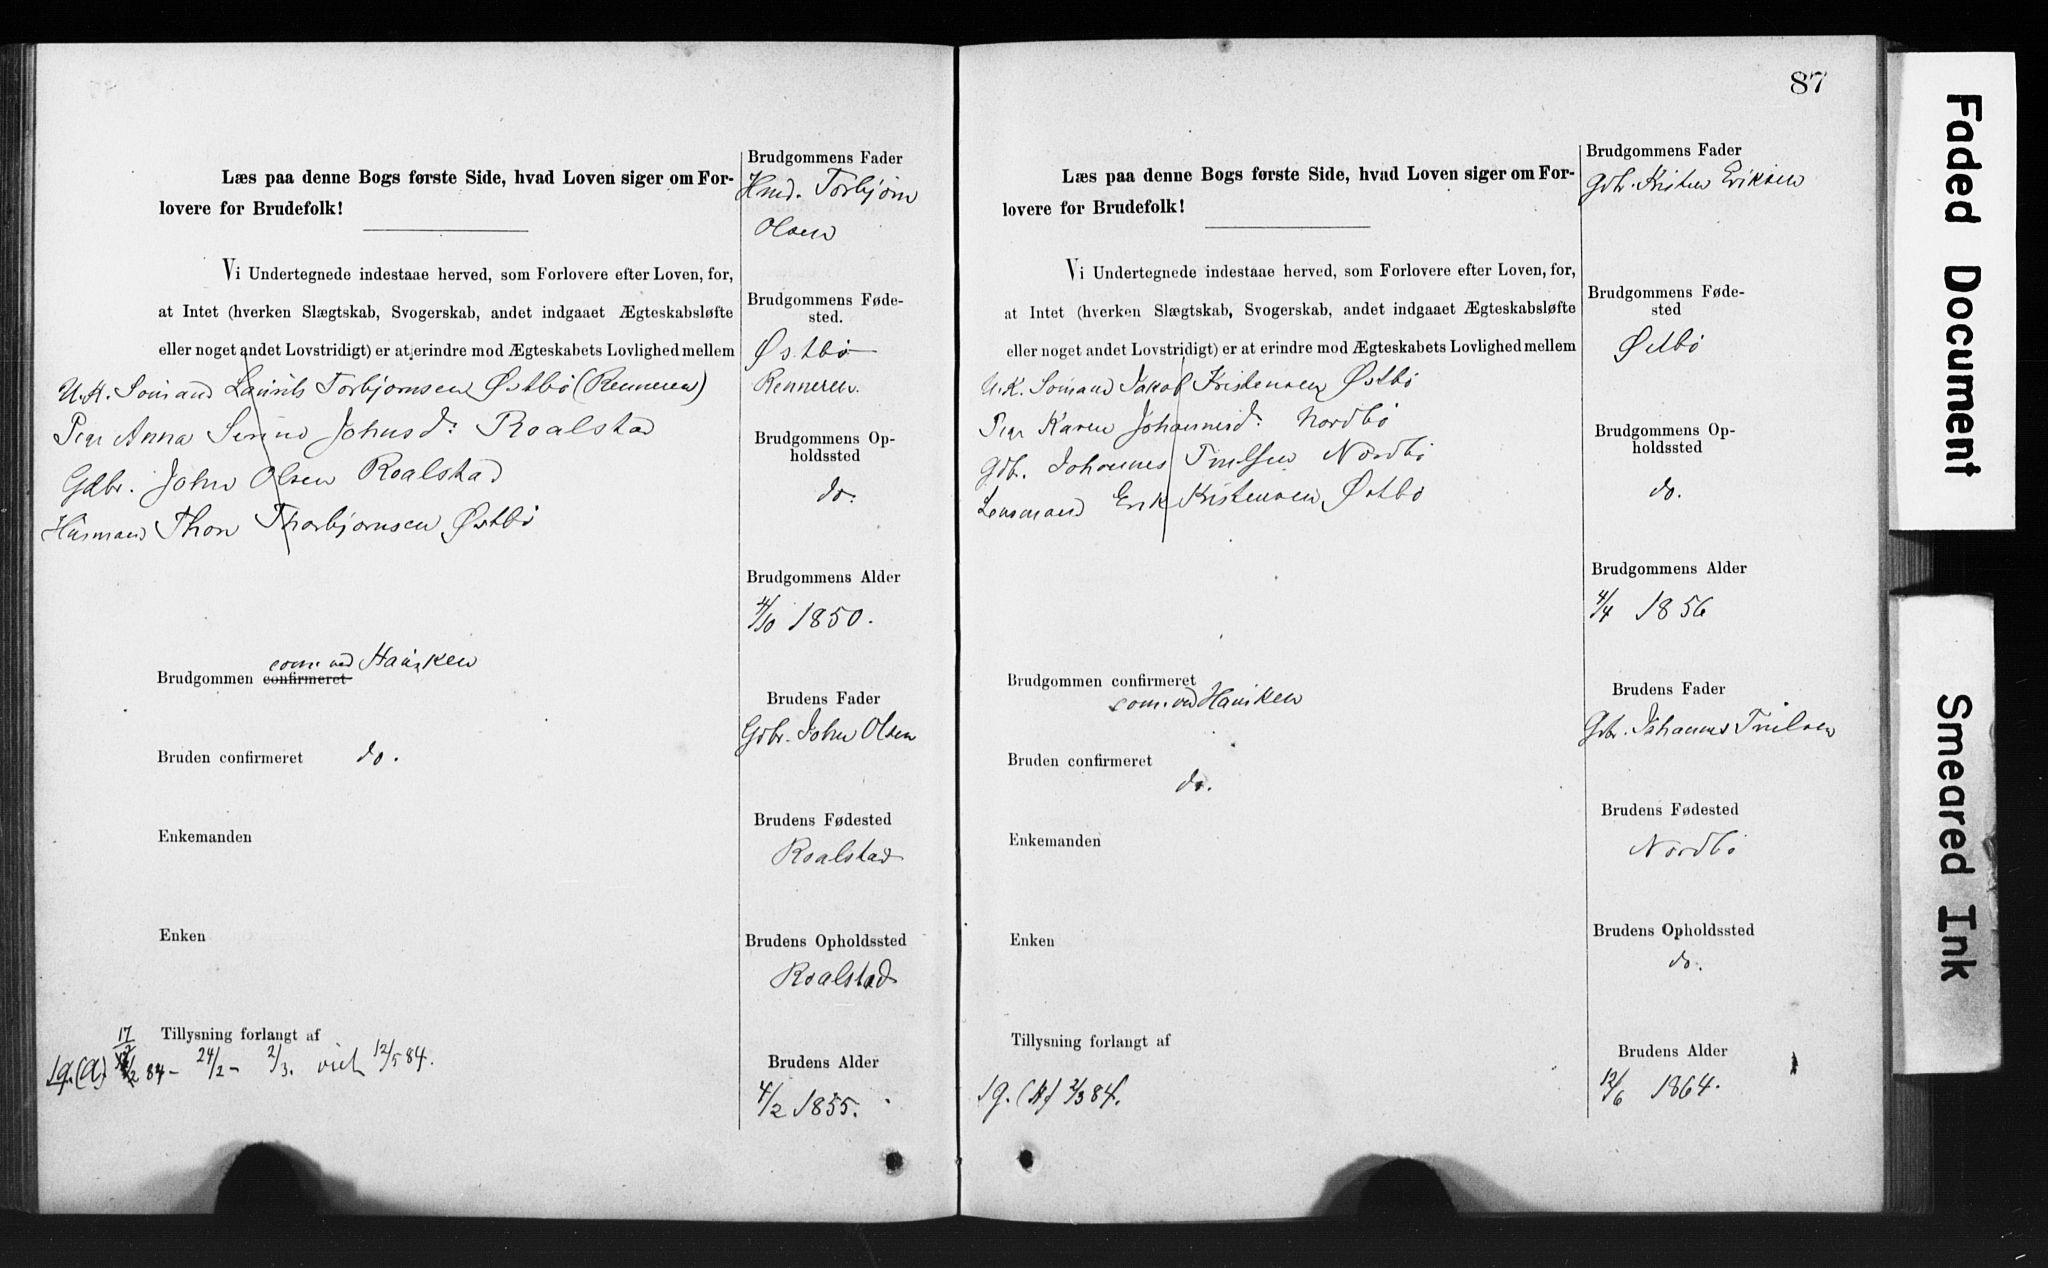 Læs paa denne Bogs første Side, hvad Loven siger om For-
lovere for Brudefolk!
Vi Undertegnede indestaae herved, som Forlovere efter Loven, for,
at Intet (hverken Slægtskab, Svogerskab, andet indgaaet Ægteskabsløfte
eller noget andet Lovstridigt) er at erindre mod Ægteskabets Lovlighed mellem
U.K. Sømand Laurits Torbjørnsen Østbø (Renneren)
Pige Anna Serine Johnsd: Roalstad
Gdbr. John Olsen Roalstad
Husmand Thore Thorbjørnsen Østbø
com. ved Hausken
Brudgommen confirmeret
Bruden confirmeret do.
Enkemanden
Enken
Tillysning forlangt af
17/2
1g. (A) 84 - 24/2 - 2/3. viet 12/5 84.
Brudgommens Fader
Hmd. Torbjørn
Olsen
Brudgommens Føde-
sted.
Østbø
Renneren.
Brudgommens Op-
holdssted
do.
Brudgommens Alder
4/10 1850.
Brudens Fader
Gdbr. John Olsen
Brudens Fødested
Roalstad
Brudens Opholdssted
Roalstad
Brudens Alder
4/2 1855.
87
Læs paa denne Bogs første Side, hvad Loven siger om For-
lovere for Brudefolk!
Vi Undertegnede indestaae herved, som Forlovere efter Loven, for,
at Intet (hverken Slægtskab, Svogerskab, andet indgaaet Ægteskabsløfte
eller noget andet Lovstridigt) er at erindre mod Ægteskabets Lovlighed mellem
U.K. Sømand Jakob Kristensen Østbø
Pige Karen Johannesd: Nordbø
Gdbr. Johannes Nordbø
Lensmand Erik Kristensen Østbø
Brudgommen confirmeret
com. ved Hausken
Bruden confirmeret
do.
Enkemanden
Enken
Tillysning forlangt af
1g. (K) 2/3 84.
Brudgommens Fader
Gdbr. Kristen Eriksen
Brudgommens Føde-
sted
Østbø
Brudgommens Op-
holdssted
do.
Brudgommens Alder
4/4 1856
Brudens Fader
Gdbr. Johannes
Brudens Fødested
Nordbø
Brudens Opholdssted
do.
Brudens Alder
12/6 1864.
Faded Document
Smeared Ink